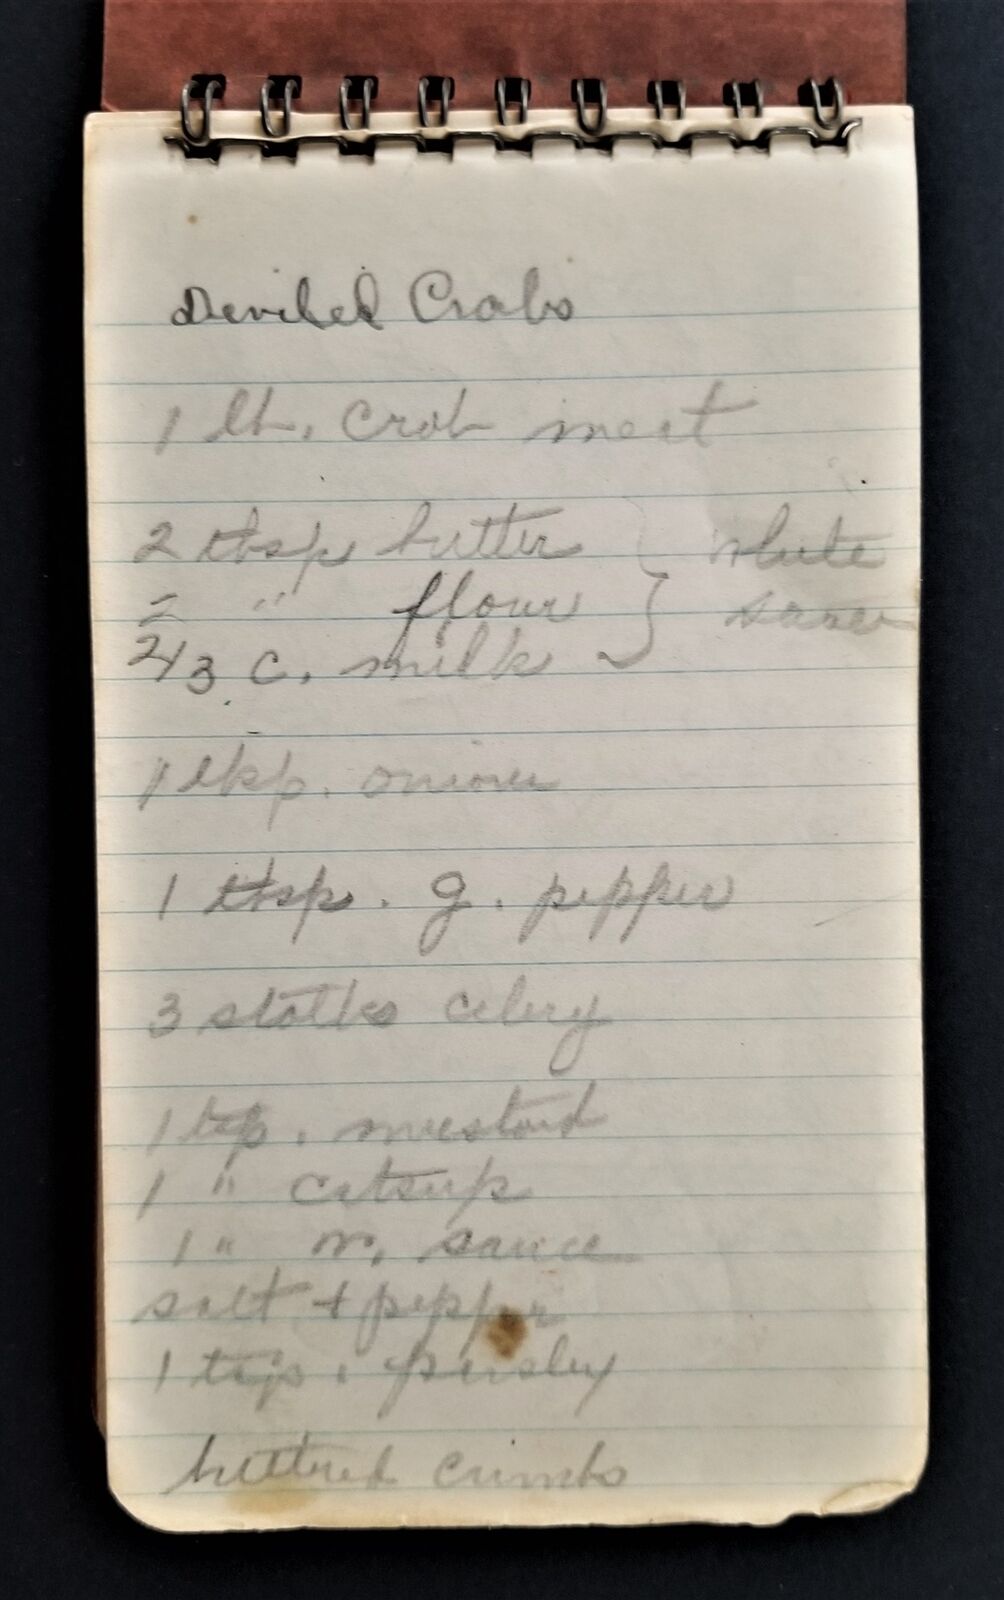 Deviled Crabs
1 lb. crab meat
2 tbsp butter } white
2 " flour } sauce
2/3 c. milk
1 tbsp. onion
1 tbsp. g. pepper
3 stalks celery
1 tsp. mustard
1 " catsup
1 " w. sauce
salt + pepper
1 tsp. parsley
buttered crumbs